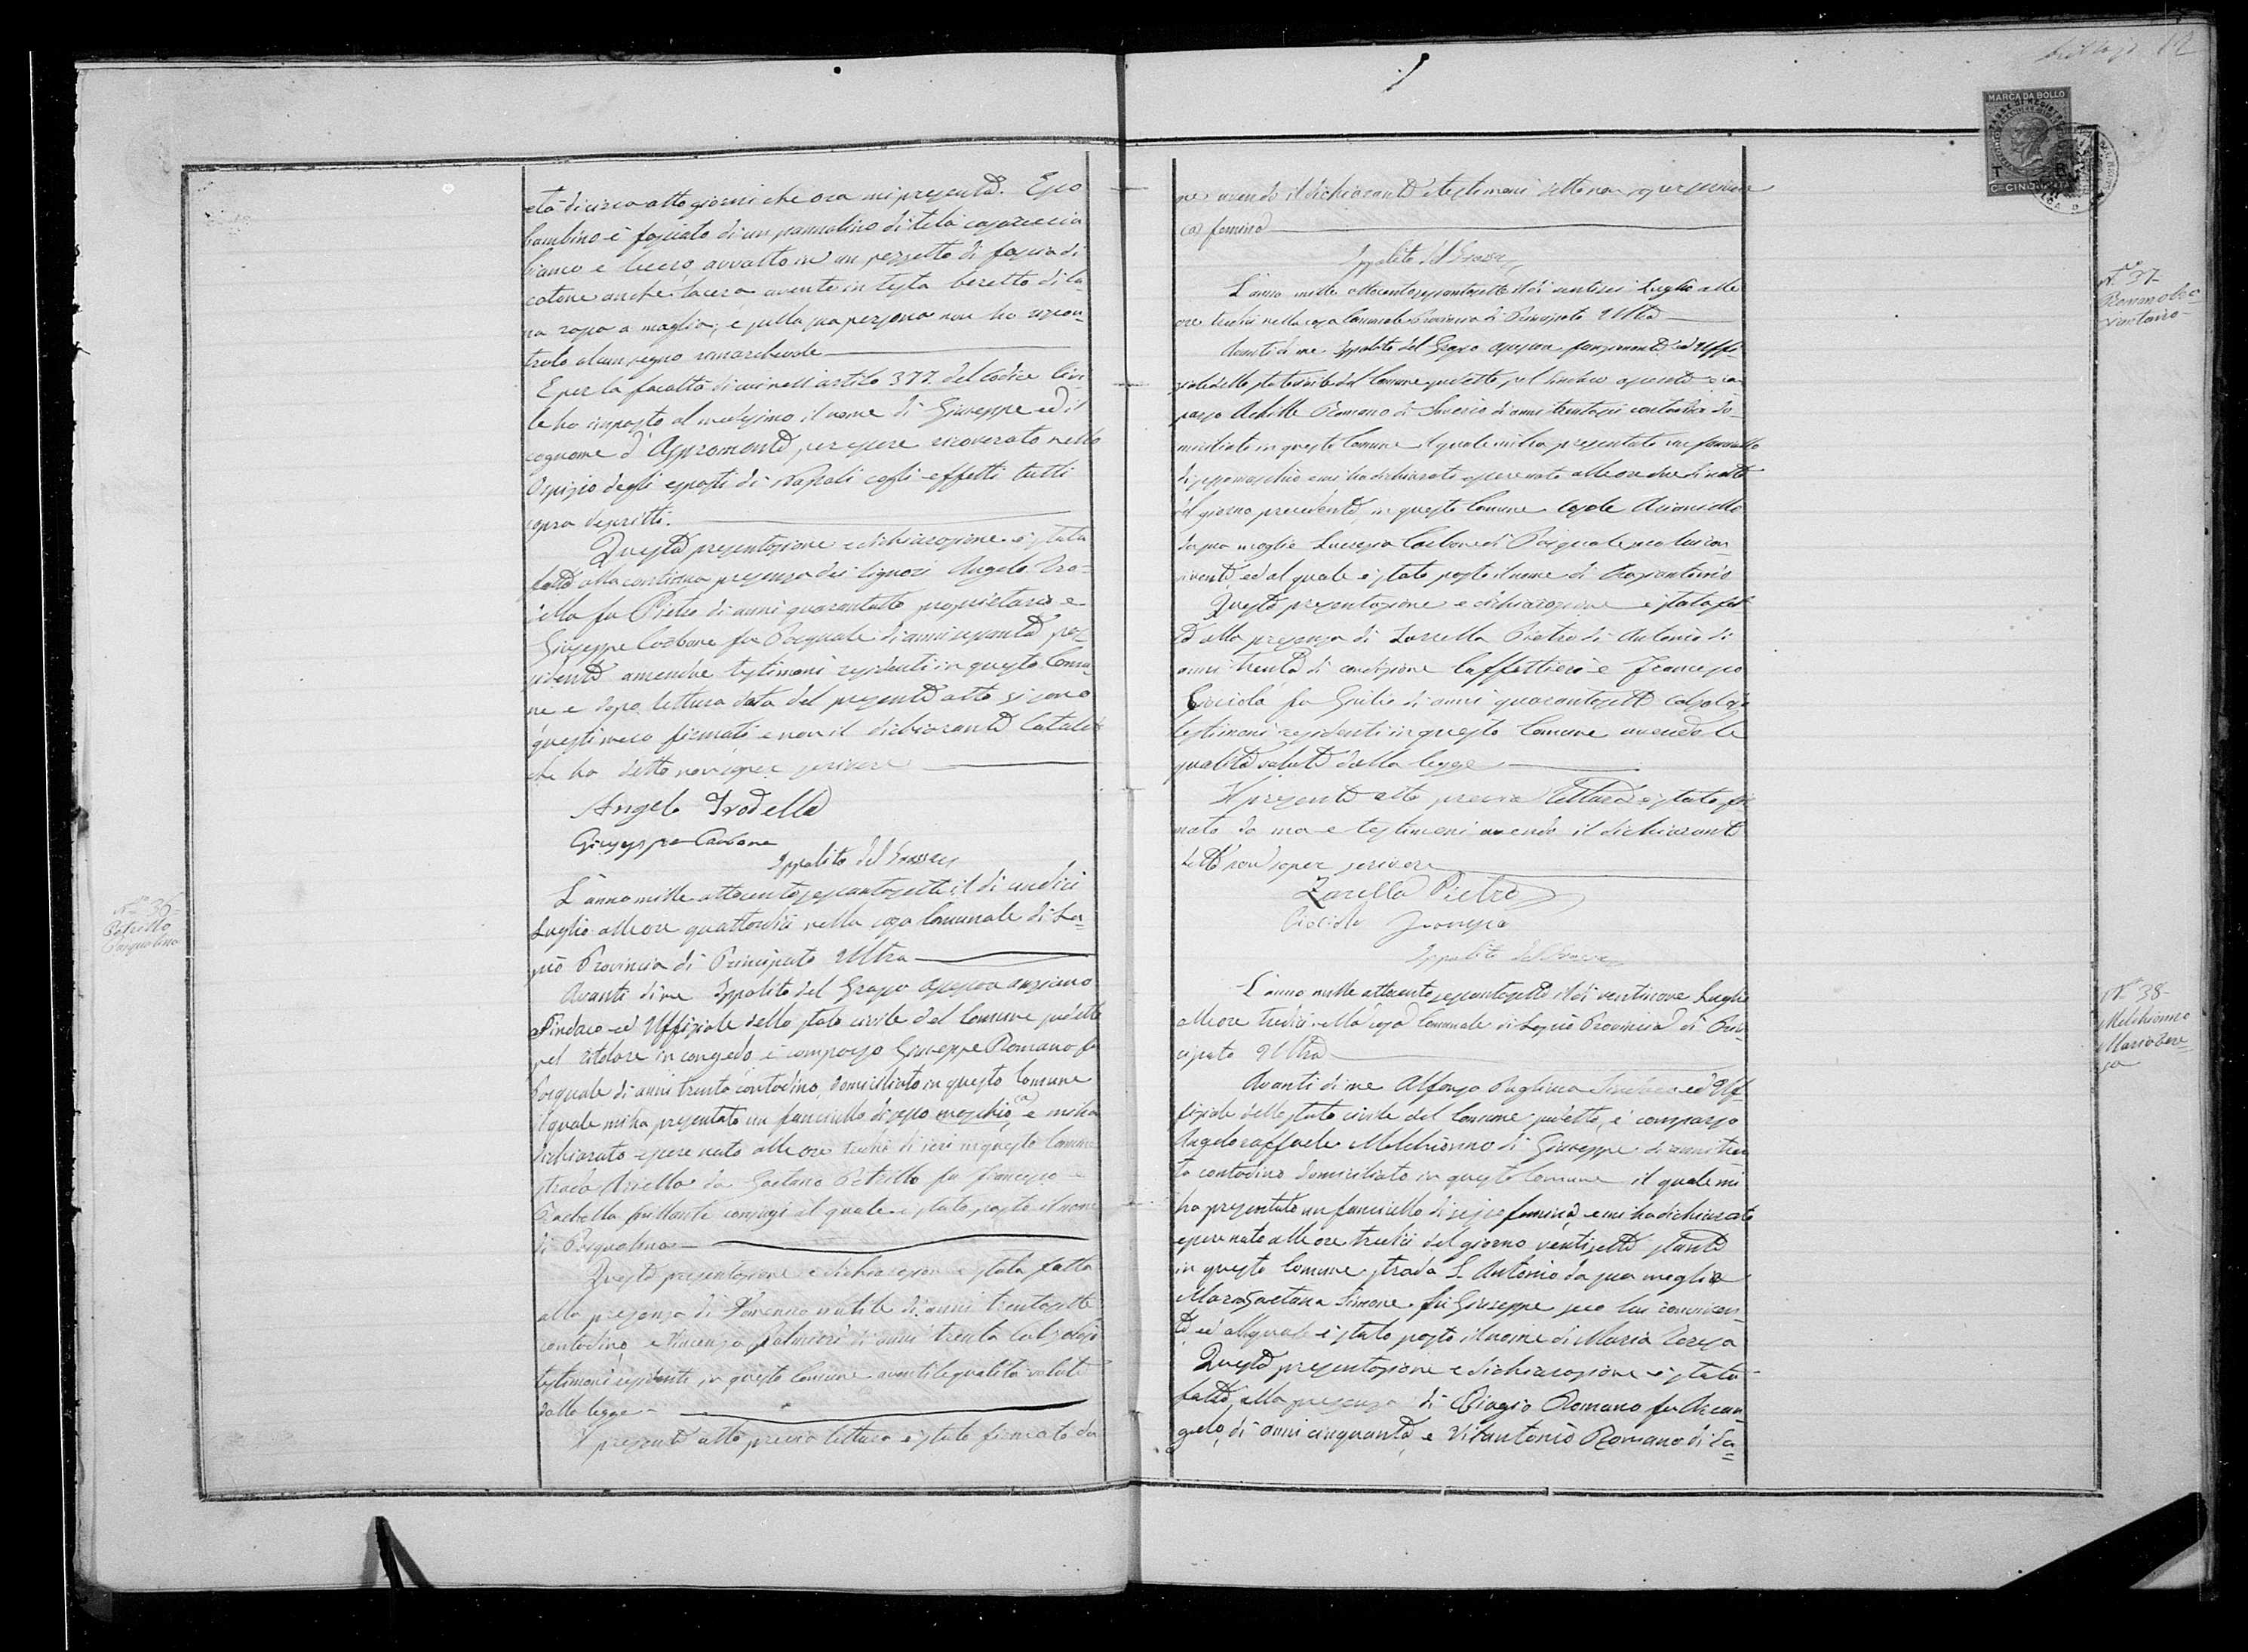 età di circa otto giorni che ora mi presenta. Esso
bambino è fasciato di un pannolino di tela casareccia
bianco e lacero avvolto in un pezzetto di fascia di
cotone anche lacera avente in testa beretto di la-
na a maglia, e sulla sua persona non ho riscon-
trato alcun segno rimarchevole
E per la facoltà di cui nell'artilo 377 del Codice Civi
le ho imposto al medesimo il nome di Giuseppe ed il
cognome d'Aspromonte, per essere ricoverato nello
Ospizio degli esposti di Napoli cogli effetti tutti
sopra descritti.
Questa presentazione e dichiarazione è stata
fatta alla continua presenza dei signori Angelo Tro-
della fu Pietro di anni quarantotto proprietario e
Giuseppe Carbone fu Pasquale di anni sessanta pos-
sidente amendue testimoni residenti in questo Comu-
ne e dopo lettura data del presente atto si sono
questi meco firmati e non il dichiarante
che ha detto non saper scrivere
Angelo Trodella
Giuseppe Carbone
Ippolito del Grosso
L'anno mille ottocentosessantasette, il di undici
Luglio alle ore quattordici nella casa Comunale di La-
pio Provincia di Principato Ultra
Avanti di me Ippolito del Grosso assessore anziano
Sindaco ed Uffiziale dello stato civile del Comune sudetto
pel titolare in congedo è comparso Giuseppe Romano fu
Pasquale di anni trenta contadino, domiciliato in questo Comune
il quale mi ha presentato un fanciullo di sesso maschio (a), e mi ha
dichiarato essere nato alle ore tredici di ieri in questo Comune
strada da Gaetano Petrillo fu Francesco e
Rachella coniugi al quale è stato posto il nome
di Pasqualina
Questa presentazione e dichiarazione è stata fatta
alla presenza di di anni trentasette
contadino, e Vincenzo Palmieri di anni trenta Calzolajo
testimoni residenti in questo Comune aventi le qualità volute
dalla legge
Il presente atto previa lettura è stato firmato da
N.o 36
Petrillo
Pasqualina
me avendo il dichiarante e testimoni detto non saper scrivere
(a) femina
Ippolito del Grosso
L'anno mille ottocentosessantasette il di ventisei Luglio alle
ore tredici nella casa Comunale Provincia di Principato Ultra
Avanti di me Ippolito del Grosso assessore funzionante, ed Uffi-
ziale dello stato civile del Comune sudetto pel Sindaco assente è com
parso Achille Romano di Saverio di anni trentasei contadino do-
miciliato in questo Comune il quale mi ha presentato un fanciullo
di sesso maschio e mi ha dichiarato essere nato alle ore due di notte
del giorno precedente in questo Comune Casale Arianiello
da sua moglie Lucrezia Carbone di Pasquale seco lui con-
vivente, ed al quale è stato posto il nome di
Questa presentazione e dichiarazione è stata fat
ta alla presenza di Zarrella Pietro di Antonio di
anni trenta di condizione Caffettiere e Francesco
Ciociola fu Giulio di anni quarantasette calzolajo
testimoni residenti in questo Comune avendo le
qualità volute dalla legge
Il presente atto previa lettura è stato fir
mato da me e testimoni avendo il dichiarante
detto non saper scrivere
Zarella Pietro
Ciociola Francesco
Ippolito del Grosso
L'anno mille ottocentosessantasette il di ventinove Luglio
alle ore tredici nella casa Comunale di Lapio Provincia di Prin-
cipato Ultra
Avanti di me Alfonso Sindaco ed Uf-
fiziale dello stato civile del Comune sudetto, è comparso
Angeloraffaele Melchionno di Giuseppe di anni tren
ta contadino domiciliato in questo Comune il quale mi
ha presentato un fanciullo di sesso femina, e mi ha dichiarato
essere nato alle ore tredici del giorno ventisette stante
in questo Comune strada S. Antonio da sua moglie
Mariagaetana Simone fu Giuseppe seco lui conviven-
te ed al quale è stato posto il nome di Maria Teresa
Questa presentazione e dichiarazione è stata
fatta alla presenza di Biagio Romano fu Arcan-
gelo, di anni cinquanta, e Vitantonio Romano di Sa=
N.o 37
Romano
N.o 38
Melchionno
Maria Tere
sa
12
MARCA DA BOLLO